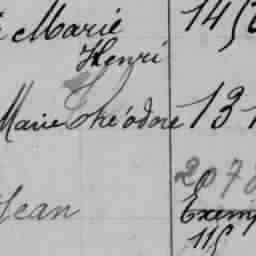 Marie 145
Henri
Marie Théodore 131
207
Jean Exem
115